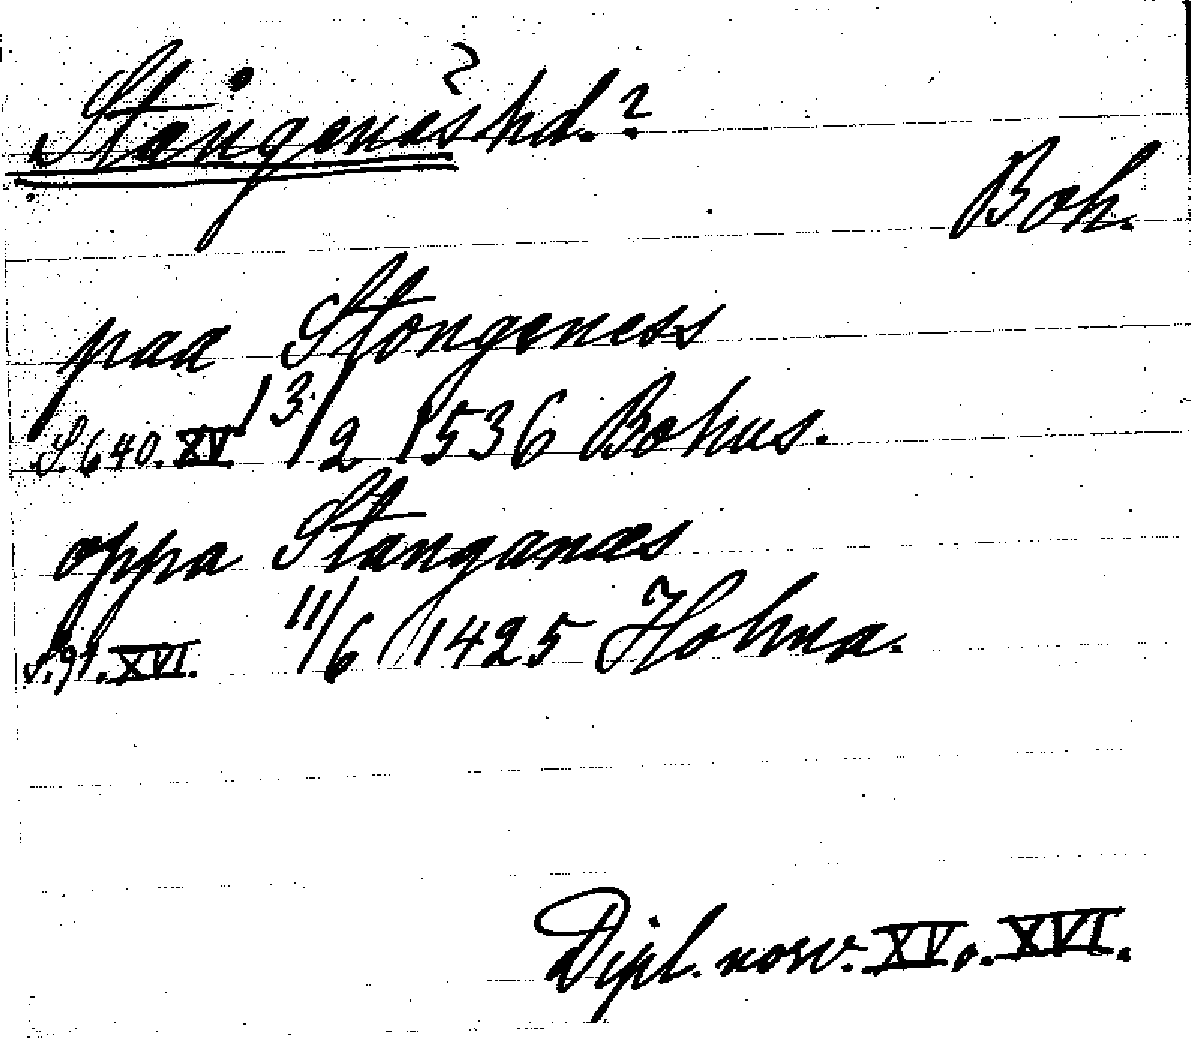 Stångenäs hd.?
Boh.
paa Stongeness
S. 640. XV. 13/2 1536 Bohus.
oppa Stanganæs
S. 97. XVI. 11/6 1425
Dipl. norv. XV o. XVI.